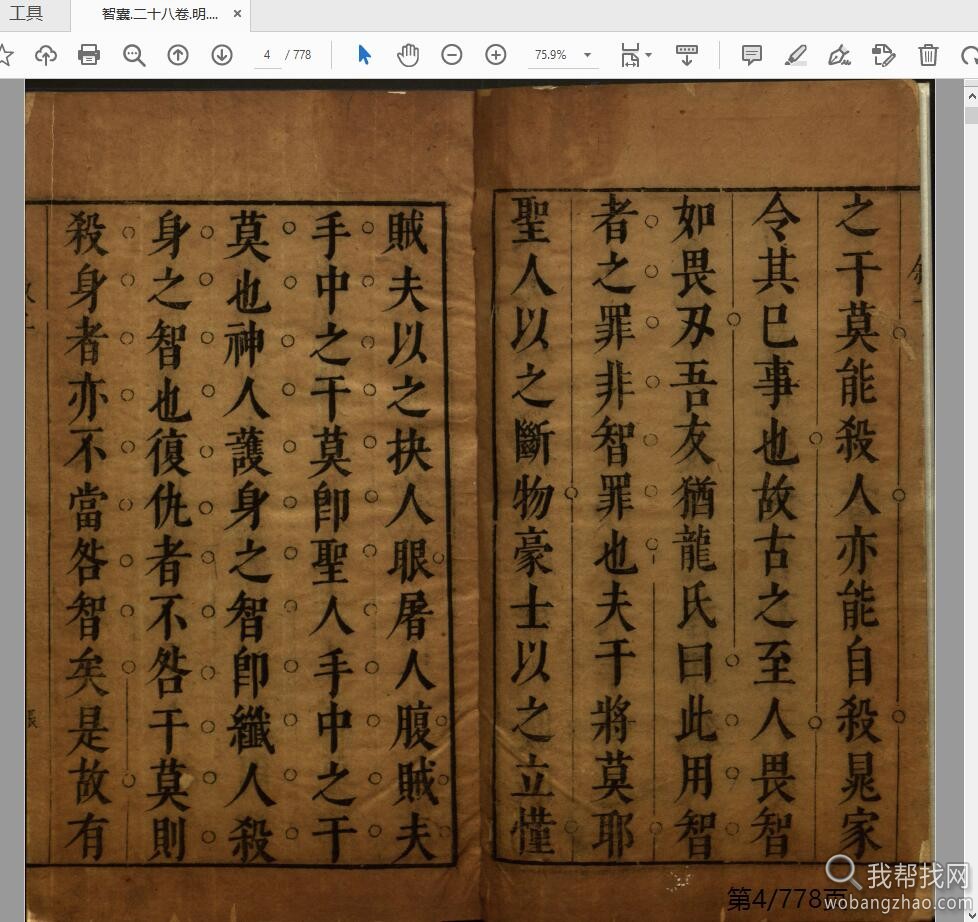 工具
智囊.二十八卷.明....
4 / 778
75.9%
之干莫能殺人亦能自殺晁家
令其巳事也故古之至人畏智
如畏刄吾友猶龍氏曰此用智
者之罪非智罪也夫干將莫耶
聖人以之斷物豪士以之立懂
賊夫以之抉人眼屠人腹賊夫
手中之干莫卽聖人手中之干
莫也神人護身之智卽纖人殺
身之智也復仇者不咎干莫則
殺身者亦不當咎智矣是故有
第4/778页
我帮找网
wobangzhao.com